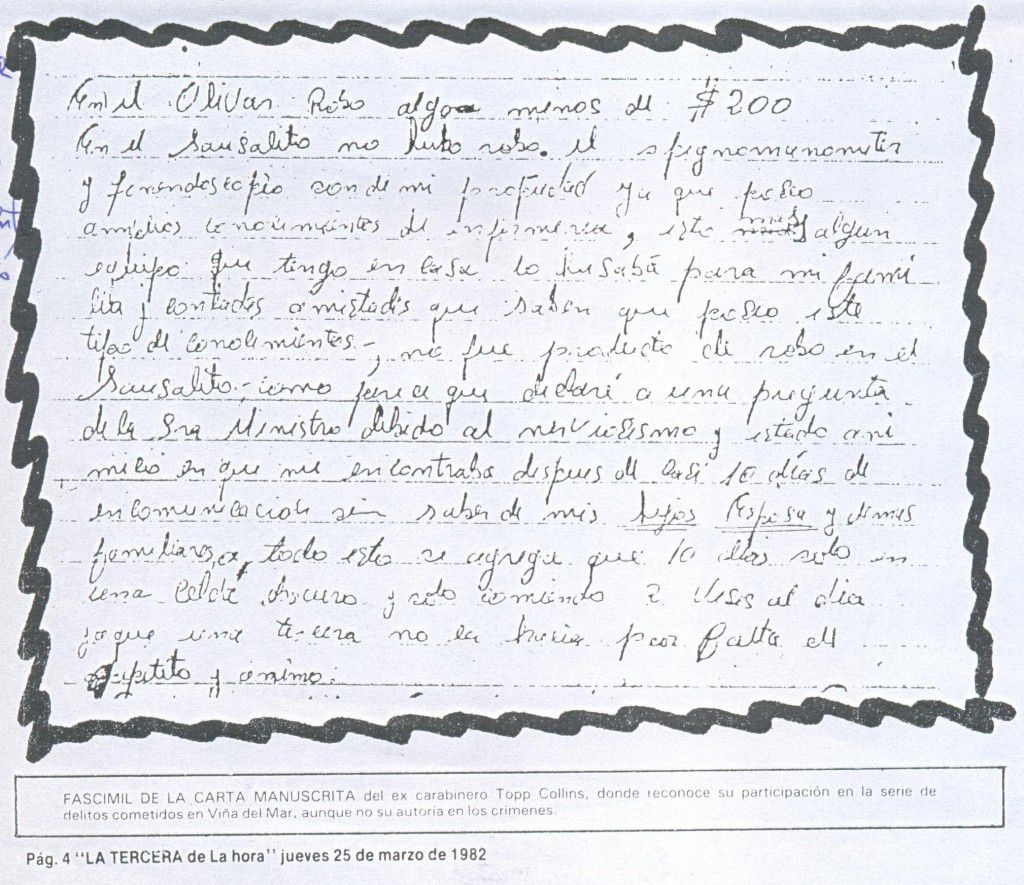 En el Olivar Robo algo menos de $200
En el Sausalito no hubo robo. el spegnomanometer
y fonendoscopio son de mi propiedad ya que poseo
amplios conocimientos de enfermeria, esto mas algun
equipo que tengo en casa lo husaba para mi fami
lia y contadas amistades que saben que poseo este
tipo de conocimientos.- y no fue producto de robo en el
Sausalito.- como parece que declaré a una pregunta
de la Sra Ministro debido al nerviosismo y estado ani
mico en que me encontraba despues de casi 10 días de
incomunicacion sin saber de mis hijos Esposa y demas
familiares, a todo esto se agrega que 10 días solo en
una celda obscura y solo comiendo 2 veses al día
yaque una tercera no la hacia por falta de
apetito y animo.
FASCIMIL DE LA CARTA MANUSCRITA del ex carabinero Topp Collins, donde reconoce su participación en la serie de
delitos cometidos en Viña del Mar, aunque no su autoría en los crímenes.
Pág. 4 "LA TERCERA de La hora" jueves 25 de marzo de 1982